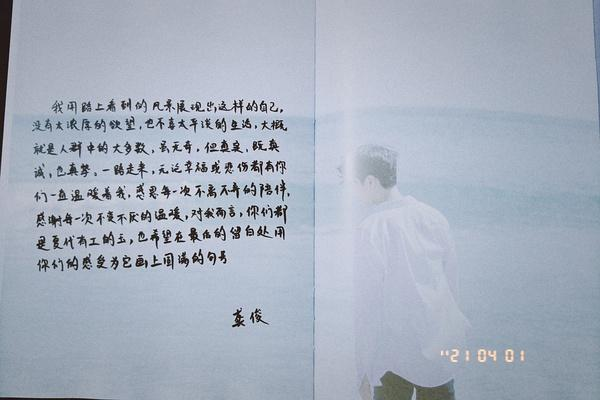 我用路上看到的风景展现出这样的自己,
没有太浓厚的欲望,也不喜太平淡的生活,大概
就是人群中的大多数,虽无奇,但真实,既真
诚,也真挚。一路走来,无论幸福或悲伤都有你
们一直温暖着我,感恩每一次不离不弃的陪伴,
感谢每一次不变不厌的温暖,对我而言,你们都
是夏代有工的玉,也希望在最后的留白处用
你们的感受为它画上圆满的句号
龚俊
'21 04 01